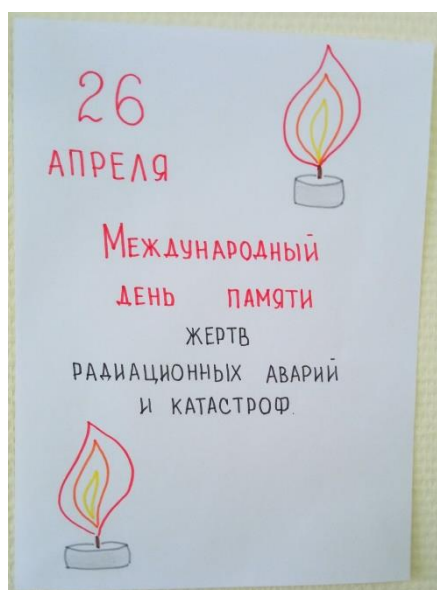 26
АПРЕЛЯ
МЕЖДУНАРОДНЫЙ
ДЕНЬ ПАМЯТИ
ЖЕРТВ
РАДИАЦИОННЫХ АВАРИЙ
И КАТАСТРОФ.